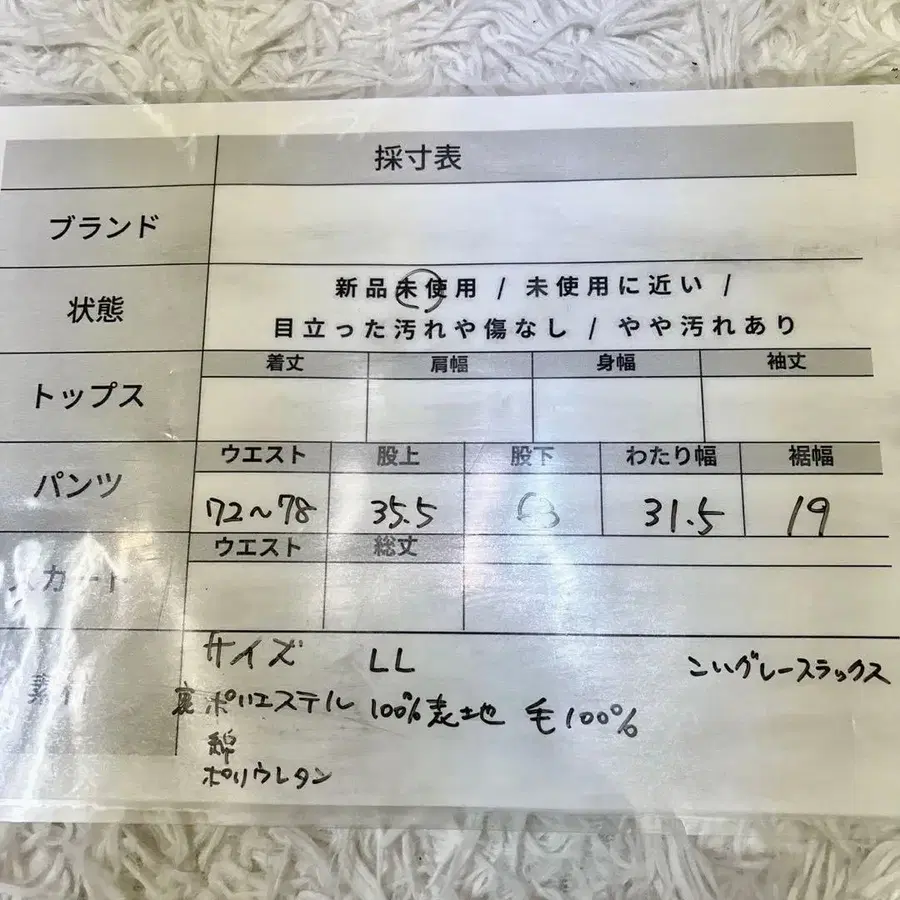 採寸表
ブランド
状態
新品未使用 / 未使用に近い /
目立った汚れや傷なし / やや汚れあり
トップス
着丈 肩幅 身幅 袖丈
パンツ
ウエスト 股上 股下 わたり幅 裾幅
72～78 35.5 31.5 19
スカート
ウエスト 総丈
素材
サイズ LL こいグレースラックス
裏 ポリエステル 100% 表地 毛100%
綿
ポリウレタン